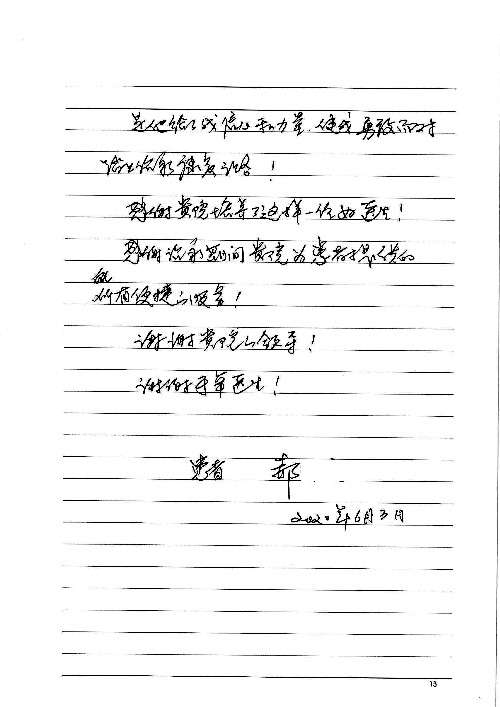 是他给了我信心和力量,使我勇敢面对
治疗康复训练!
感谢贵院培养了这样一位好医生!
感谢治疗期间贵院为患者提供的
所有便捷的服务!
谢谢贵院的领导!
谢谢 医生!
患者 郝
2020年6月3日
13